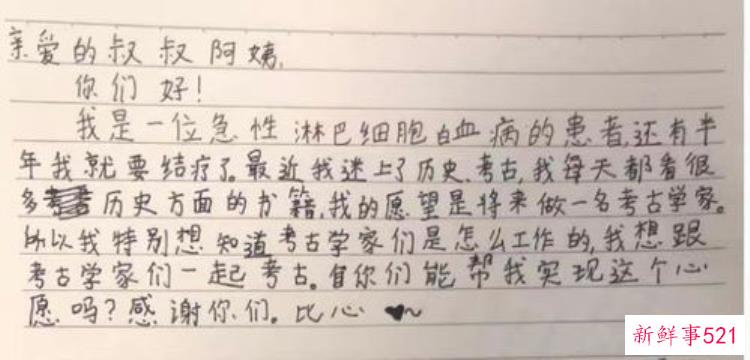 亲爱的叔叔阿姨,
你们好!
我是一位急性淋巴细胞白血病的患者,还有半
年我就要结疗了。最近我迷上了历史、考古,我每天都看很
多历史方面的书籍,我的愿望是将来做一名考古学家。
所以我特别想知道考古学家们是怎么工作的,我想跟
考古学家们一起考古。你们能帮我实现这个心
愿吗?感谢你们。比心
新鲜事521